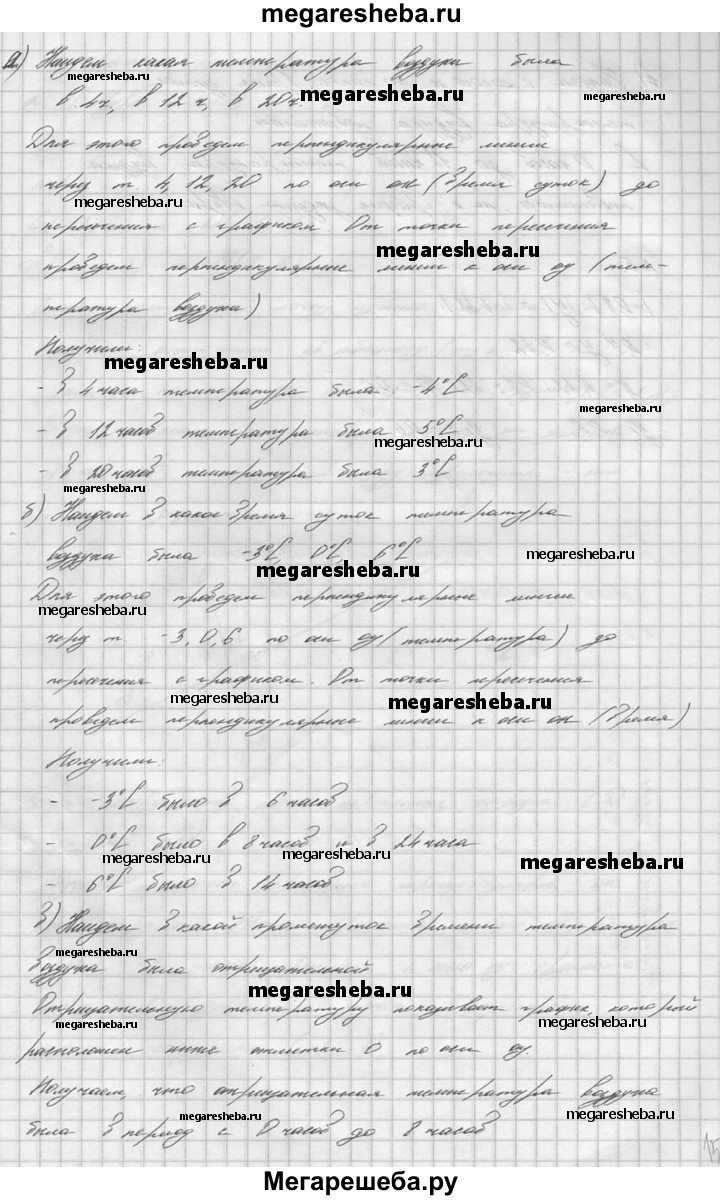 megaresheba.ru
а) Найдем какая температура воздуха была
megaresheba.ru
в 4ч, в 12 ч, в 20ч.
megaresheba.ru
megaresheba.ru
Для этого проведем перпендикулярные линии
через т. 4, 12, 20 по оси ох (время суток) до
megaresheba.ru
пересечения с графиком. От точки пересечения
megaresheba.ru
megaresheba.ru
проведем перпендикулярные линии к оси оу (тем-
пература воздуха)
Получили:
megaresheba.ru
- в 4 часа температура была -4°С
megaresheba.ru
- в 12 часов температура была 5°С
megaresheba.ru
- в 20 часов температура была 3°С
megaresheba.ru
б) Найдем в какое время суток температура
воздуха была -3°С, 0°С, 6°С
megaresheba.ru
megaresheba.ru
Для этого проведем перпендикулярные линии
megaresheba.ru
через т -3, 0, 6 по оси оу (температура) до
пересечения с графиком. От точки пересечения
megaresheba.ru
megaresheba.ru
проведем перпендикулярные линии к оси ох (время)
Получили:
- -3°С было в 6 часов
- 0°С было в 8 часов и в 24 часа
megaresheba.ru
megaresheba.ru
megaresheba.ru
- 6°С было в 14 часов.
в) Найдем в какой промежуток времени температура
megaresheba.ru
воздуха была отрицательной
megaresheba.ru
Отрицательную температуру показывает график, который
megaresheba.ru
megaresheba.ru
расположен ниже отметки 0 по оси оу.
Получаем, что отрицательная температура воздуха
megaresheba.ru
megaresheba.ru
была в период с 0 часов до 8 часов
15
Мегарешеба.ру